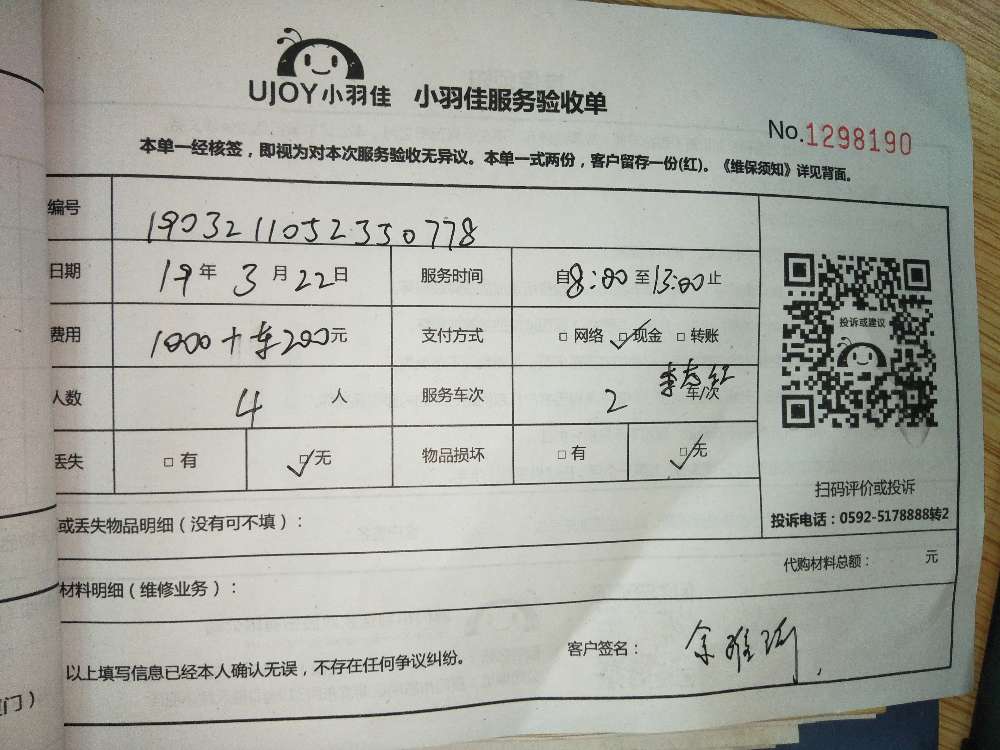 UJOY小羽佳 小羽佳服务验收单
No.1298190
本单一经核签，即视为对本次服务验收无异议。本单一式两份，客户留存一份(红)。《维保须知》详见背面。
编号 1903211052350778
日期 19年3月22日 服务时间 自8:00至13:00止
费用 1000+车200元 支付方式 □网络 ☑现金 □转账
人数 4人 服务车次 2车/次
丢失 □有 ☑无 物品损坏 □有 ☑无
投诉或建议
扫码评价或投诉
投诉电话：0592-5178888转2
或丢失物品明细（没有可不填）：
材料明细（维修业务）： 代购材料总额： 元
以上填写信息已经本人确认无误，不存在任何争议纠纷。 客户签名：
门）